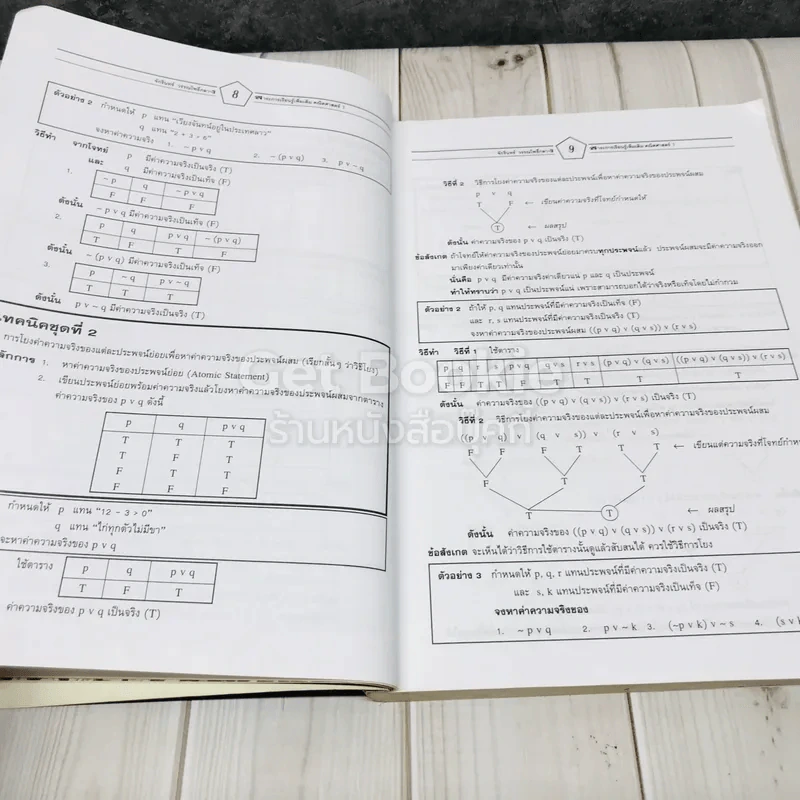 8
ตัวอย่าง 2 กำหนดให้ p แทน "เวียงจันทน์อยู่ในประเทศลาว"
q แทน "2 + 3 > 6"
จงหาค่าความจริง 1. ~p v q 2. ~(p v q) 3. p v ~q
วิธีทำ จากโจทย์ p มีค่าความจริงเป็นจริง (T)
และ q มีค่าความจริงเป็นเท็จ (F)
1.
~p q ~p v q
F F F
ดังนั้น ~p v q มีค่าความจริงเป็นเท็จ (F)
2.
p q p v q ~(p v q)
T F T F
ดังนั้น ~(p v q) มีค่าความจริงเป็นเท็จ (F)
3.
p ~q p v ~q
T T T
ดังนั้น p v ~q มีค่าความจริงเป็นจริง (T)
เทคนิคชุดที่ 2
การโยงค่าความจริงของแต่ละประพจน์ย่อยเพื่อหาค่าความจริงของประพจน์ผสม (เรียกสั้นๆ ว่าวิธีโยง)
หลักการ 1. หาค่าความจริงของประพจน์ย่อย (Atomic Statement)
2. เขียนประพจน์ย่อยพร้อมค่าความจริงแล้วโยงหาค่าความจริงของประพจน์ผสมจากตาราง
ค่าความจริงของ p v q ดังนี้
p q p v q
T T T
T F T
F T T
F F F
กำหนดให้ p แทน "12 – 3 > 0"
q แทน "ไก่ทุกตัวไม่มีขา"
จะหาค่าความจริงของ p v q
ใช้ตาราง
p q p v q
T F T
ค่าความจริงของ p v q เป็นจริง (T)
9
วิธีที่ 2 วิธีการโยงค่าความจริงของแต่ละประพจน์เพื่อหาค่าความจริงของประพจน์ผสม
p v q
T F ← เขียนค่าความจริงที่โจทย์กำหนดให้
T ← ผลสรุป
ดังนั้น ค่าความจริงของ p v q เป็นจริง (T)
ข้อสังเกต ถ้าโจทย์ให้ค่าความจริงของประพจน์ย่อยมาครบทุกประพจน์แล้ว ประพจน์ผสมจะมีค่าความจริงออก
มาเพียงค่าเดียวเท่านั้น
นั่นคือ p v q มีค่าความจริงค่าเดียวแน่ p และ q เป็นประพจน์
ทำให้ทราบว่า p v q เป็นประพจน์แน่ เพราะสามารถบอกได้ว่าจริงหรือเท็จโดยไม่กำกวม
ตัวอย่าง 2 ถ้าให้ p, q แทนประพจน์ที่มีค่าความจริงเป็นเท็จ (F)
และ r, s แทนประพจน์ที่มีค่าความจริงเป็นจริง (T)
จงหาค่าความจริงของประพจน์ผสม ((p v q) v (q v s)) v (r v s)
วิธีทำ วิธีที่ 1 ใช้ตาราง
p q r s p v q q v s r v s (p v q) v (q v s) ((p v q) v (q v s)) v (r v s)
F F T T F T T T T
ดังนั้น ค่าความจริงของ ((p v q) v (q v s)) v (r v s) เป็นจริง (T)
วิธีที่ 2 วิธีการโยงค่าความจริงของแต่ละประพจน์เพื่อหาค่าความจริงของประพจน์ผสม
((p v q) v (q v s)) v (r v s)
F F F T T T ← เขียนแต่ค่าความจริงที่โจทย์กำหนด
F T T
T T ← ผลสรุป
ดังนั้น ค่าความจริงของ ((p v q) v (q v s)) v (r v s) เป็นจริง (T)
ข้อสังเกต จะเห็นได้ว่าวิธีการใช้ตารางนั้นดูแล้วสับสนได้ ควรใช้วิธีการโยง
ตัวอย่าง 3 กำหนดให้ p, q, r แทนประพจน์ที่มีค่าความจริงเป็นจริง (T)
และ s, k แทนประพจน์ที่มีค่าความจริงเป็นเท็จ (F)
จงหาค่าความจริงของ
1. ~p v q 2. p v ~k 3. (~p v k) v ~s 4. (s v k
Get Bookie
ร้านหนังสือบุ๊คกี้